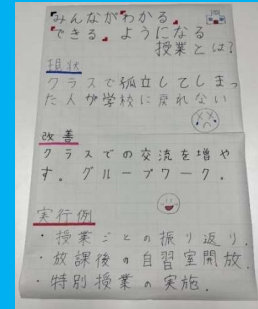 「みんなが「わかる」
「できる」ようになる
授業とは?
現状
クラスで孤立してしまっ
た人が学校に戻れない
改善
クラスでの交流を増や
す。グループワーク。
実行例
・授業ごとの振り返り
・放課後の自習室開放
・特別授業の実施